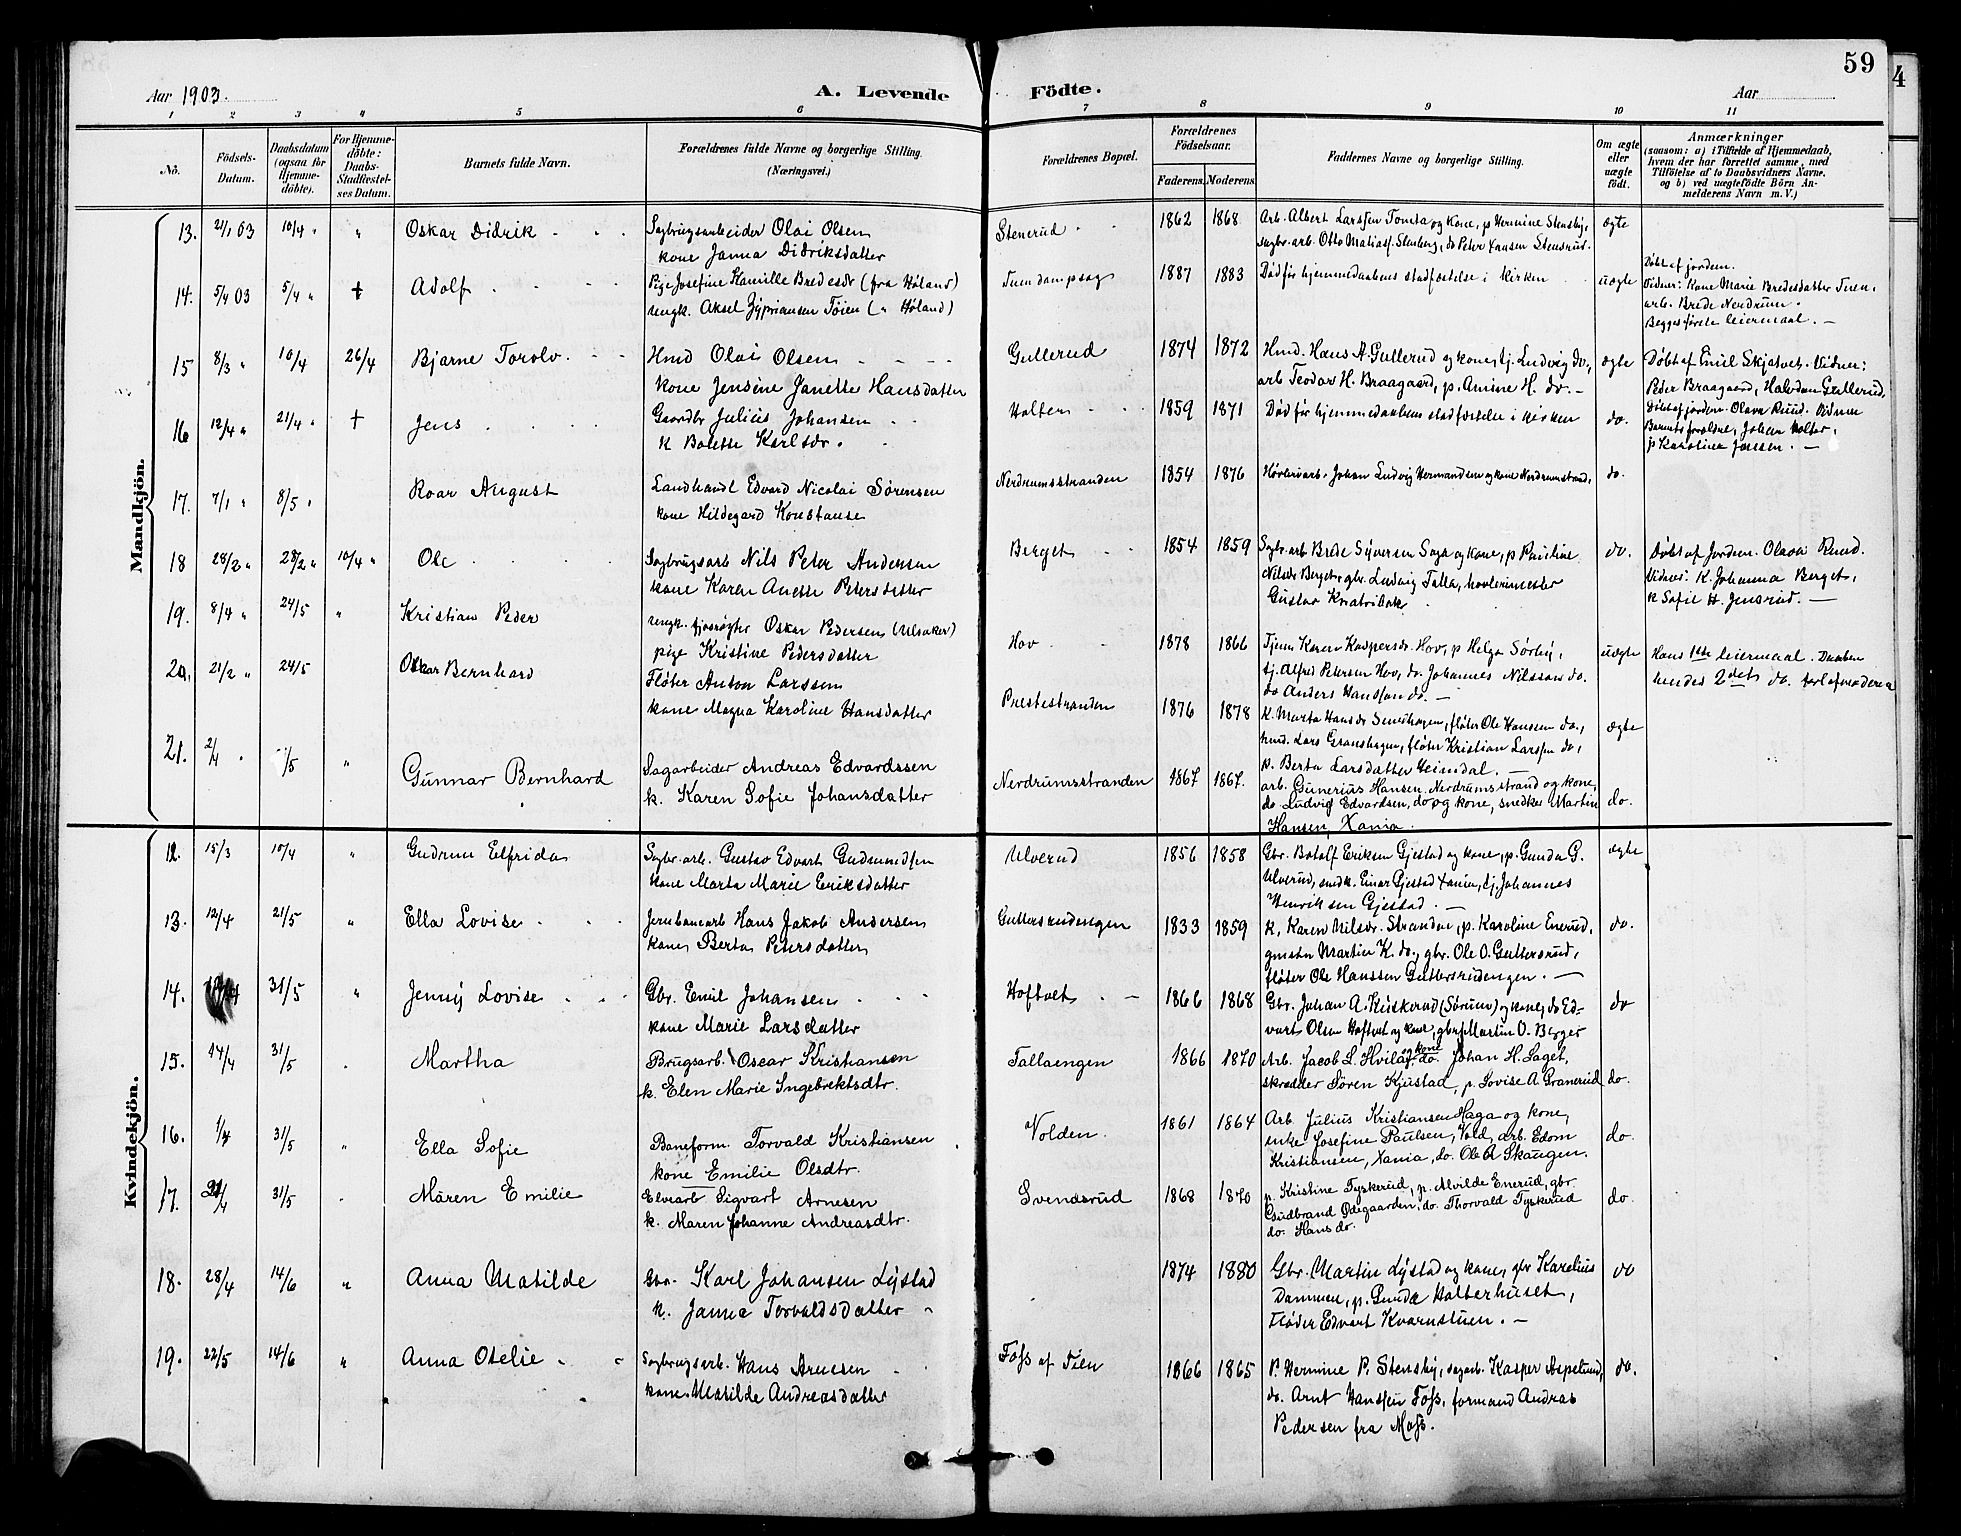 59
4
Aar 1903. A. Levende Födte. Aar
1 2 3 4 5 6 7 8 9 10 11
No.
Födsels-Datum.
Daabsdatum (ogsaa for Hjemmedöbte).
For Hjemmedöbte: Daabs-Stadfæstelses Datum.
Barnets fulde Navn.
Forældrenes fulde Navne og borgerlige Stilling. (Næringsvei.)
Forældrenes Bopæl.
Forældrenes Födselsaar.
Faderens. Moderens.
Faddernes Navne og borgerlige Stilling.
Om ægte eller uægte födt.
Anmærkninger (saasom: a) i Tilfælde af Hjemmedaab, hvem der har forrettet samme, med Tilföielse af to Daabsvidners Navne, og b) ved uægtefödte Börn Anmelderens Navn m. V.)
Mandkjön.
13. 21/1 03 10/4 " " Oskar Didrik Sagbrugsarbeider Olai Olsen Stenerud 1862 1868 Arb. Albert Larssen Tomta og Kone, p Hermine Stensby, ægte
kone Janna Didriksdatter sagbr. arb. Otto Matiass. Stenberg, do Peter Hansen Stensrud.
14. 5/4 03 5/4 " + Adolf Pige Josefine Kamille Bredesdr (fra Høland) Tuen dampsag 1887 1883 Død før hjemmedaabens stadfæstelse i Kirken uægte Døbt af jordem.
ungk. Aksel Zypriansen Töien (" Høland) Vidner: Kone Marie Bredesdatter Tuen,
arb. Brede Nerdrum.
Begges første leiermaal. —
15 8/3 " 10/4 26/4 Bjarne Torolv Hmd Olai Olsen Gullerud 1874 1872 Hmd. Hans A. Gullerud og kone, tj. Ludvig do, ægte Døbt af Emil Skjatvet. Vidner:
kone Jensine Janette Hansdatter arb Teodor H. Braagaard, p. Amine H. do. — Peder Braagaard, Halvdan Gullerud.
16 12/4 " 21/4 " + Jens Gaardbr Julius Johansen Holter 1859 1871 Død før hjemmedaabens stadfæstelse i Kirken do. Døbt af jordem. Olava Ruud. Vidner
k Bolette Karlsdr. Barnets forældre, Johan Holter,
p Karoline Jensen. —
17. 7/1 " 8/5 " Roar August Landhandl Edvard Nicolai Sørensen Nerdrumsstranden 1854 1876 Høvleriarb. Johan Ludvig Hermandsen og kone Nerdrumstrand, do.
kone Hildegard Konstanse
18 28/2 " 28/2 " 10/4 " Ole Sagbrugsarb Nils Peter Andersen Berget 1854 1859 Sagbr. arb Brede Syversen Saga og kone, p Pauline do. Døbt af Jordem. Olava Ruud.
kone Karen Anette Petersdatter Nilsdr Berget, gbr. Ludvig Talla, høvlerimester Vidner: K. Johanna Berget,
Gustav Knatribak k Sofie H. Jensrud. —
19. 8/4 " 24/5 " Kristian Peder ungk. fjøsrøgter Oskar Pedersen (Ulvaker) Hov 1878 1866 Tjen. Karen Kaspersdr. Hov, p Helga Sørby, uægte Hans 1ste leiermaal. Daaben
pige Kristine Pedersdatter tj. Alfred Petersen Hov, do. Johannes Nilssøn do. hendes 2det do. forl af moderen
do Anders Hanssøn do. —
20. 21/2 " 24/5 Oskar Bernhard Fløter Anton Larssen Prestestranden 1876 1878 K. Marta Hansdr Seneshagen, fløter Ole Hanssen do., ægte
kone Magna Karoline Hansdatter hmd. Lars Granshagen, fløter Kristian Larssen do,
p. Berta Larsdatter Heimdal. —
21. 2/4 " /5 " Gunnar Bernhard Sagarbeider Andreas Edvardssen Nerdrumsstranden 1867 1867. arb. Gunerius Hansen, Nerdrumsstrand og kone,
k. Karen Sofie Johansdatter do Ludvig Edvardsen, do og kone, snedker Martin do.
Hansen, Xania.
Kvindekjön.
12. 15/3 10/4 " Gudrun Elfrida Sagbr. arb. Gustav Edvart Gudmundsen Ulverud 1856 1858 Gbr. Botolf Eriksen Gjestad og kone, p. Gunda G. ægte
kone Marta Marie Eriksdatter Ulverud, snedk. Einar Gjestad Xania, tj. Johannes
Henriksen Gjestad. —
13. 12/4 21/5 " Ella Lovise Jernbanearb Hans Jakob Andersen Guttersrudengen 1833 1859 K. Karen Nilsdr. Stranden, p. Karoline Enerud, do.
kone Berta Petersdatter gmstn Martin K. do., gbr. Ole O. Guttersrud,
fløter Ole Hanssen Guttersrudengen. —
14. 31/5 " Jenny Lovise Gbr. Emil Johansen Hoftvet 1866 1868 Gbr. Johan A. Kuskerud (Sørum) og kone, do Ed- do
kone Marie Larsdatter vart Olsen Hoftvet og kone, gbr Martin O. Berger
15. 14/4 31/5 . Martha Brugsarb. Oscar Kristiansen Tallaengen 1866 1870 Arb. Jacob L. Hvila og kone, do. Johan H. Saget,
k. Elen Marie Ingebrektsdtr. skrædder Søren Kjustad, p. Lovise A. Granerud do.
16. 1/4 31/5 " Ella Sofie Baneform. Torvald Kristiansen Volden. 1861 1864 Arb Julius Kristiansen Haga og kone,
kone Emilie Olsdtr. enke Josefine Paulsen, Vold, arb. Edom do.
Kristiansen, Xania, do. Ole A Skaugen.
17. 21/4 31/5 . Maren Emilie Elvearb Sigvart Arnesen Svendsrud 1868 1870 p. Kristine Tyskerud, p. Alvilde Enerud, gbr. do.
k. Maren Johanne Andreasdtr. Gudbrand Ødegaarden, do. Thorvald Tyskerud
do. Hans do.
18. 28/4 14/6 " Anna Matilde Gbr. Karl Johansen Lystad 1874 1880 Gbr. Martin Lystad og kone, gbr Karelius do
k. Janna Torvaldsdatter Dammen, p. Gunda Holterhuset,
Fløder Edvart Kvarnstuen. —
19. 22/5 14/6 " Anna Otelie Sagbrugsarb. Hans Arnesen Foss af Tien 1866 1865 P. Hermine P. Stensby, sagarb. Kasper Aspelund, do.
kone Matilde Andreasdatter do. Arnt Hanssen Foss, formand Andreas
Pedersen fra Moss.